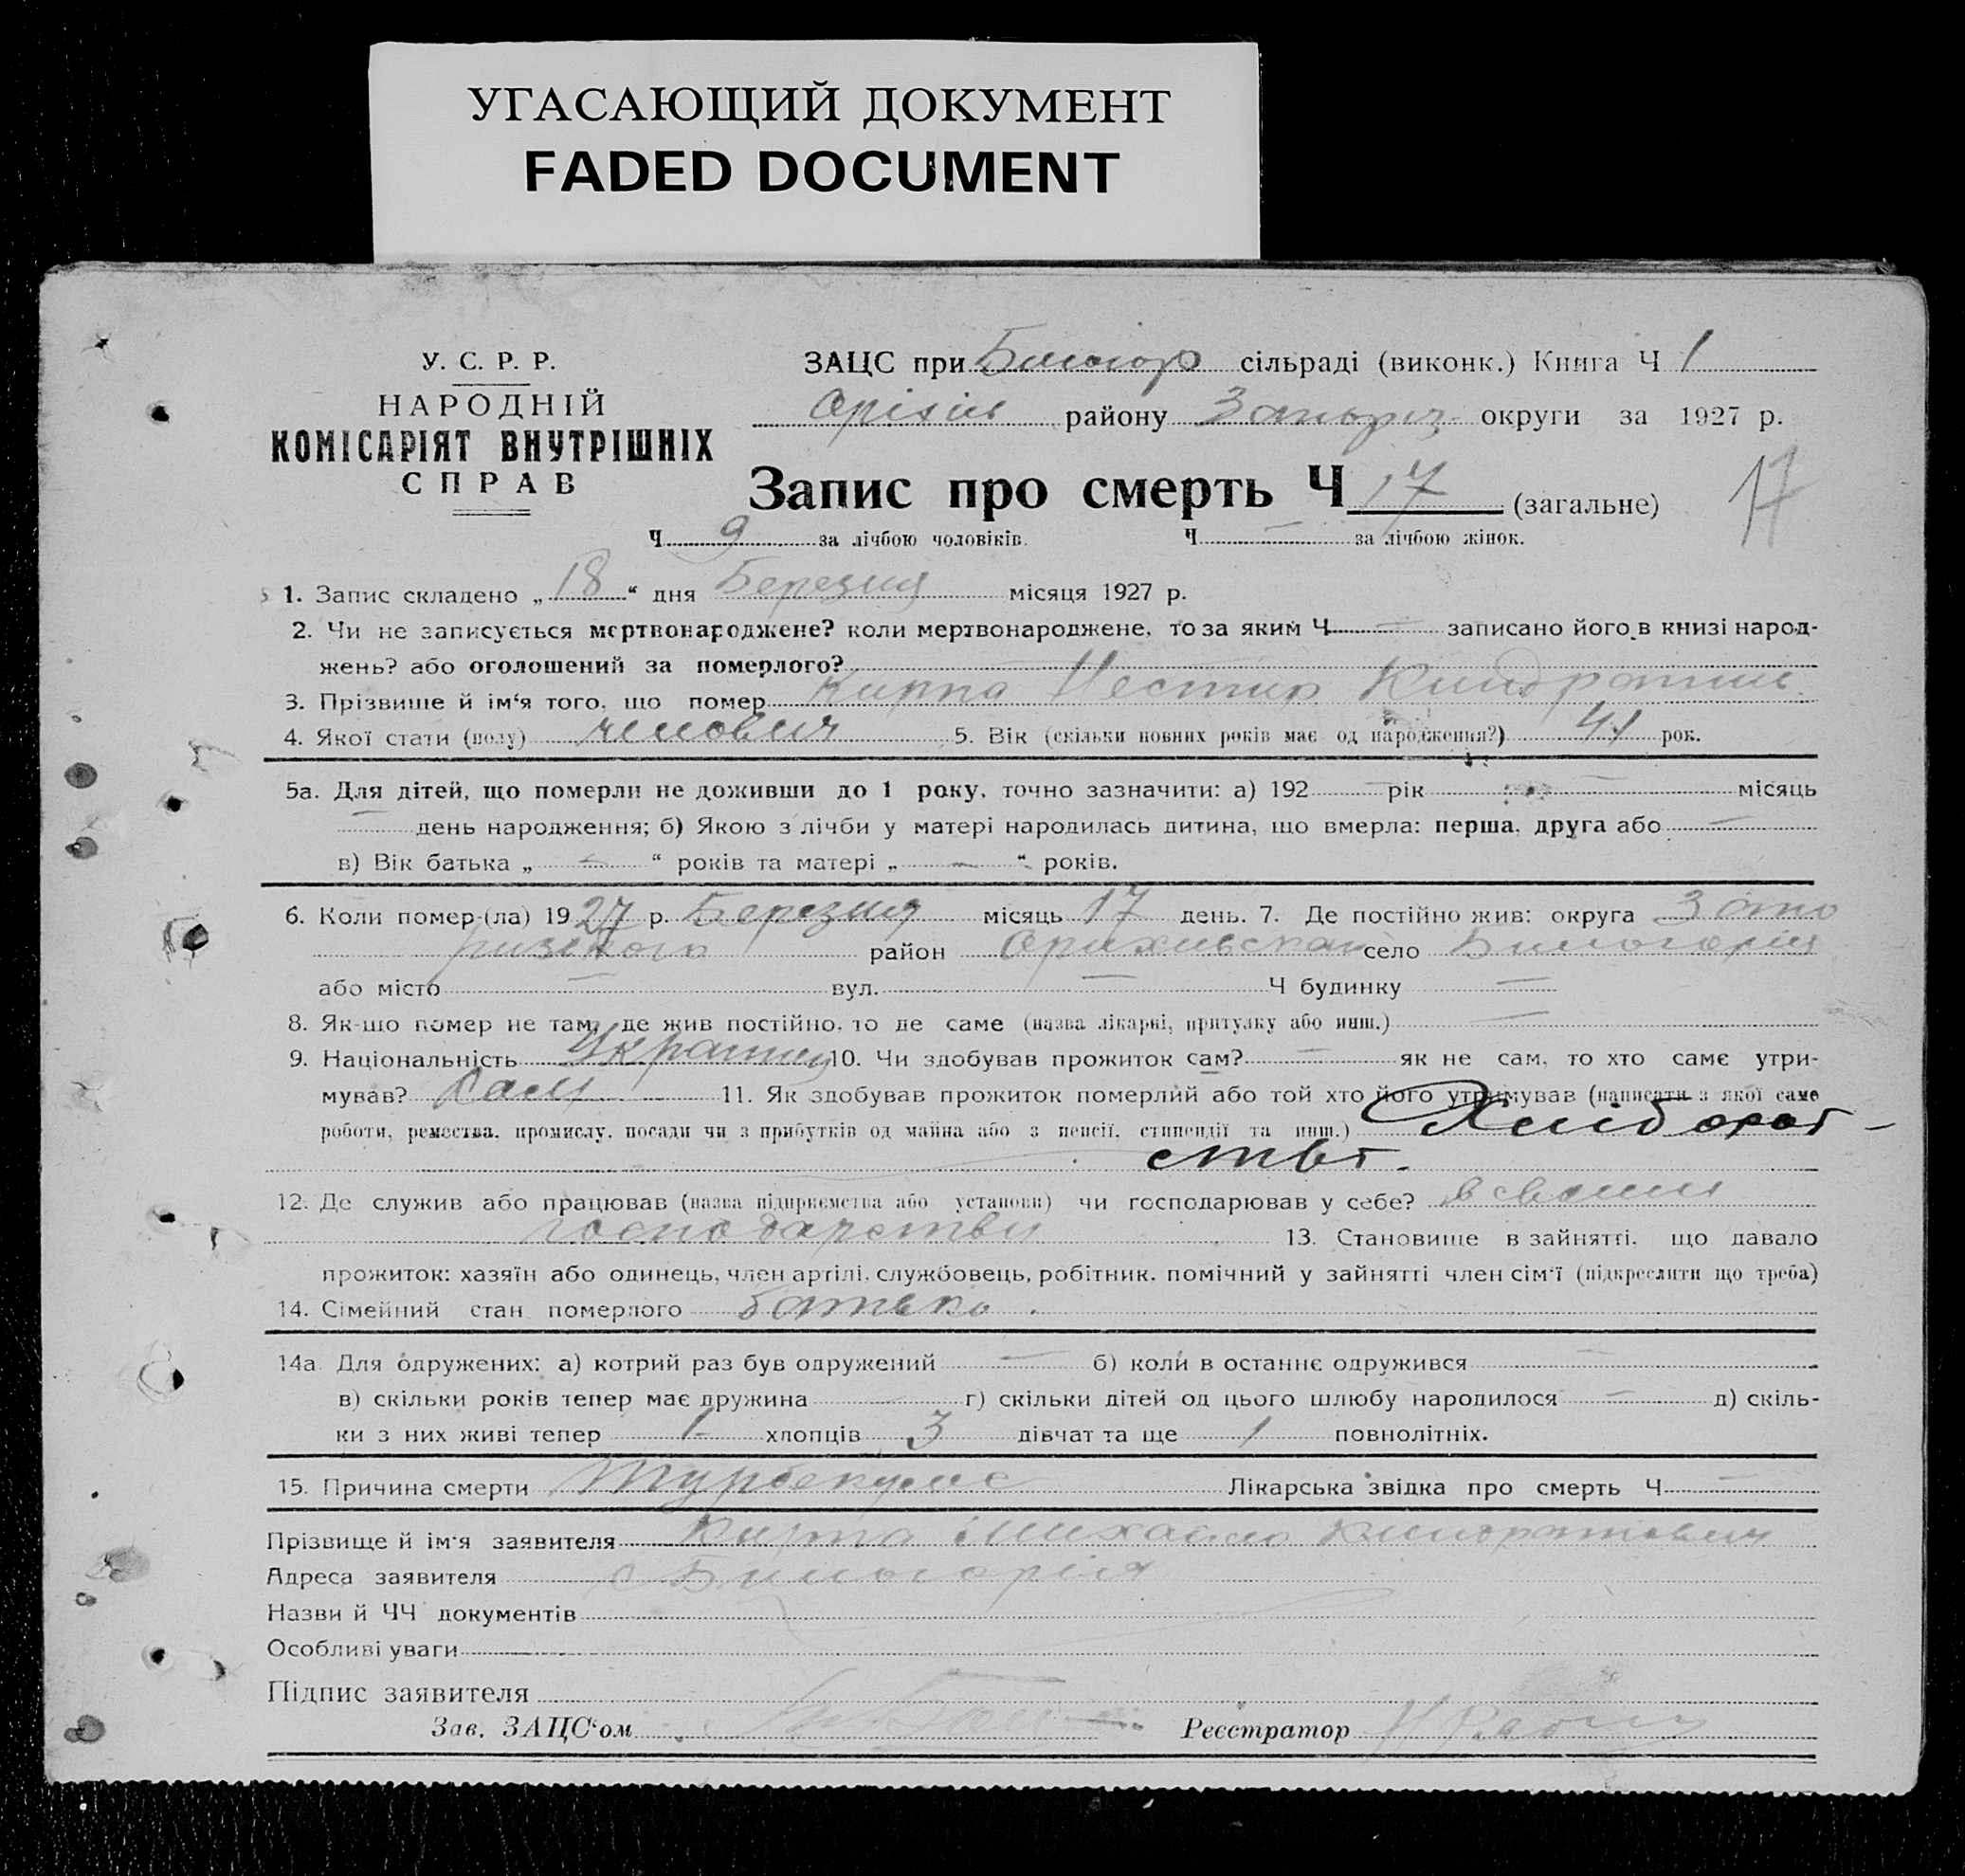 УГАСАЮЩИЙ ДОКУМЕНТ
FADED DOCUMENT
У. С. Р. Р.
НАРОДНІЙ
КОМІСАРІЯТ ВНУТРІШНІХ
СПРАВ
ЗАЦС при Билогор сільраді (виконк.) Книга Ч 1
Оріхів району Запоріз. округи за 1927 р.
Запис про смерть Ч 17 (загальне) 17
Ч 9 за лічбою чоловіків. Ч — за лічбою жінок.
1. Запис складено „ 18 “ дня Березня місяця 1927 р.
2. Чи не записується мертвонароджене? коли мертвонароджене, то за яким Ч — записано його в книзі народ-
жень? або оголошений за померлого?
3. Прізвище й ім‘я того, що помер Кирпа Нестир Киндратив
4. Якої стати (полу) чилович 5. Вік (скільки повних років має од народження?) 41 рок.
5а. Для дітей, що померли не доживши до 1 року, точно зазначити: а) 192 — рік — місяць
— день народження; б) Якою з лічби у матері народилась дитина, що вмерла: перша, друга або —
в) Вік батька „ — “ років та матері „ — “ років.
6. Коли помер-(ла) 1927 р. Березня місяць 17 день. 7. Де постійно жив: округа Запо
ризького район Орихивский село Билогорія
або місто — вул. — Ч будинку —
8. Як-що помер не там, де жив постійно, то де саме (назва лікарні, притулку або инш.) —
9. Національність Украинец 10. Чи здобував прожиток сам? — як не сам, то хто саме утри-
мував? Сам 11. Як здобував прожиток померлий або той хто його утримував (написати з якої саме
роботи, ремества, промислу, посади чи з прибутків од майна або з пенсії, стипендії та инш.) Хлібороб-
ство.
12. Де служив або працював (назва підприємства або установи) чи господарював у себе? в своим
господарстви 13. Становище в зайнятті, що давало
прожиток: хазяїн або одинець, член артілі, службовець, робітник, помічний у зайнятті член сім‘ї (підкреслити що треба)
14. Сімейний стан померлого батько.
14а Для одружених: а) котрий раз був одружений — б) коли в останнє одружився —
в) скільки років тепер має дружина — г) скільки дітей од цього шлюбу народилося — д) скіль-
ки з них живі тепер 1 хлопців 3 дівчат та ще 1 повнолітніх.
15. Причина смерти Турбекулис Лікарська звідка про смерть Ч —
Прізвище й ім‘я заявителя Кирпа Михайло Киндратович
Адреса заявителя с Билогорія
Назви й ЧЧ документів
Особливі уваги
Підпис заявителя
Зав. ЗАЦС‘ом
Реєстратор